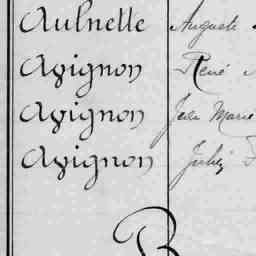 Aulnette Auguste
Avignon René
Avignon Jean Marie
Avignon Julien
B